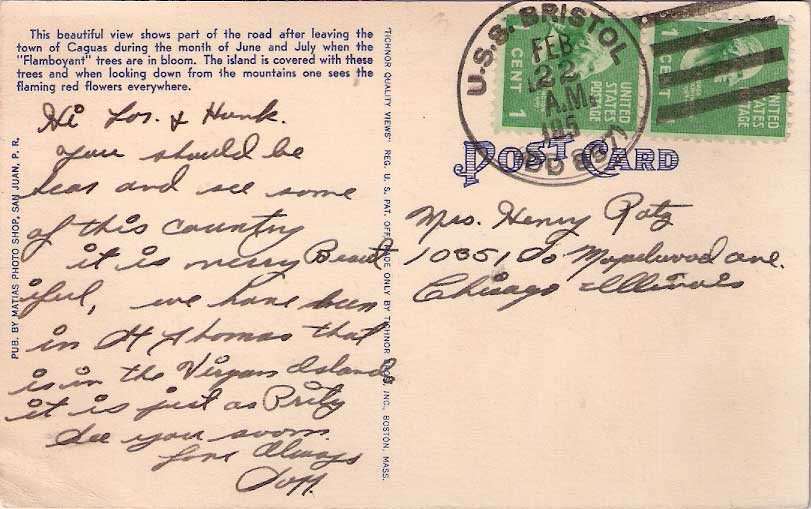 This beautiful view shows part of the road after leaving the
town of Caguas during the month of June and July when the
"Flamboyant" trees are in bloom. The island is covered with these
trees and when looking down from the mountains one sees the
flaming red flowers everywhere.
Hi Los. & Hunk.
You should be
hear and see some
of this country
it is merry Beaut
iful, we have been
in St Thomas that
is in the Virgan Islands
it is just as Prity
See you soon.
Love Always
PUB. BY MATIAS PHOTO SHOP, SAN JUAN, P. R.
"TICHNOR QUALITY VIEWS" REG. U. S. PAT. OFF. MADE ONLY BY TICHNOR BROS., INC., BOSTON, MASS.
U.S.S. BRISTOL
FEB
22
A.M.
(DD 857)
UNITED
STATES
POSTAGE
1 CENT 1
UNITED
STATES
POSTAGE
1 CENT 1
POST CARD
Mrs. Henry Ratz
10351 So Mapelwood ave.
Chicago Illinois